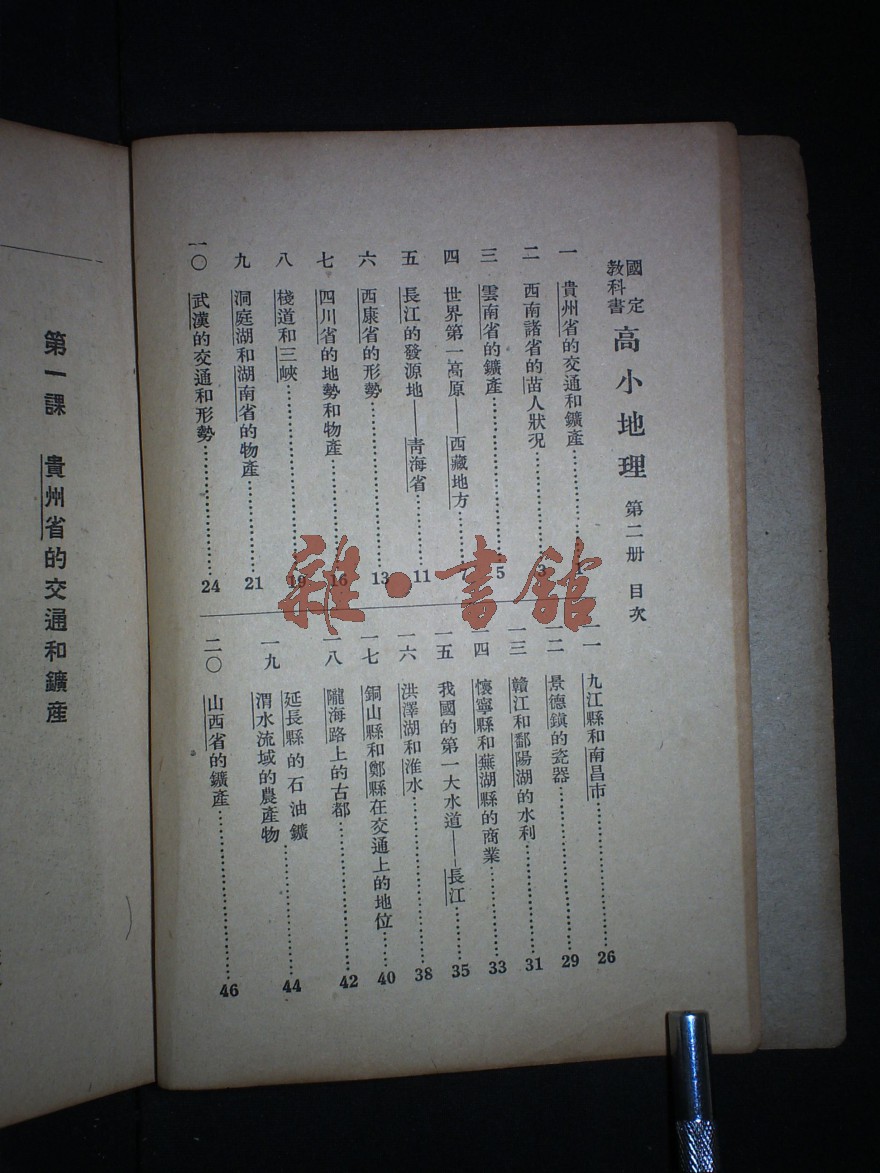 國定教科書 高小地理 第二册 目次
一 貴州省的交通和鑛產……1
二 西南諸省的苗人狀況……3
三 雲南省的鑛產……5
四 世界第一高原——西藏地方……
五 長江的發源地——靑海省……11
六 西康省的形勢……13
七 四川省的地勢和物產……16
八 棧道和三峽……19
九 洞庭湖和湖南省的物產……21
一〇 武漢的交通和形勢……24
一一 九江縣和南昌市……26
一二 景德鎭的瓷器……29
一三 贛江和鄱陽湖的水利……31
一四 懷寧縣和蕪湖縣的商業……33
一五 我國的第一大水道——長江……35
一六 洪澤湖和淮水……38
一七 銅山縣和鄭縣在交通上的地位……40
一八 隴海路上的古都……42
一九 延長縣的石油鑛
渭水流域的農產物……44
二〇 山西省的鑛產……46
第一課 貴州省的交通和鑛產
雜·書館